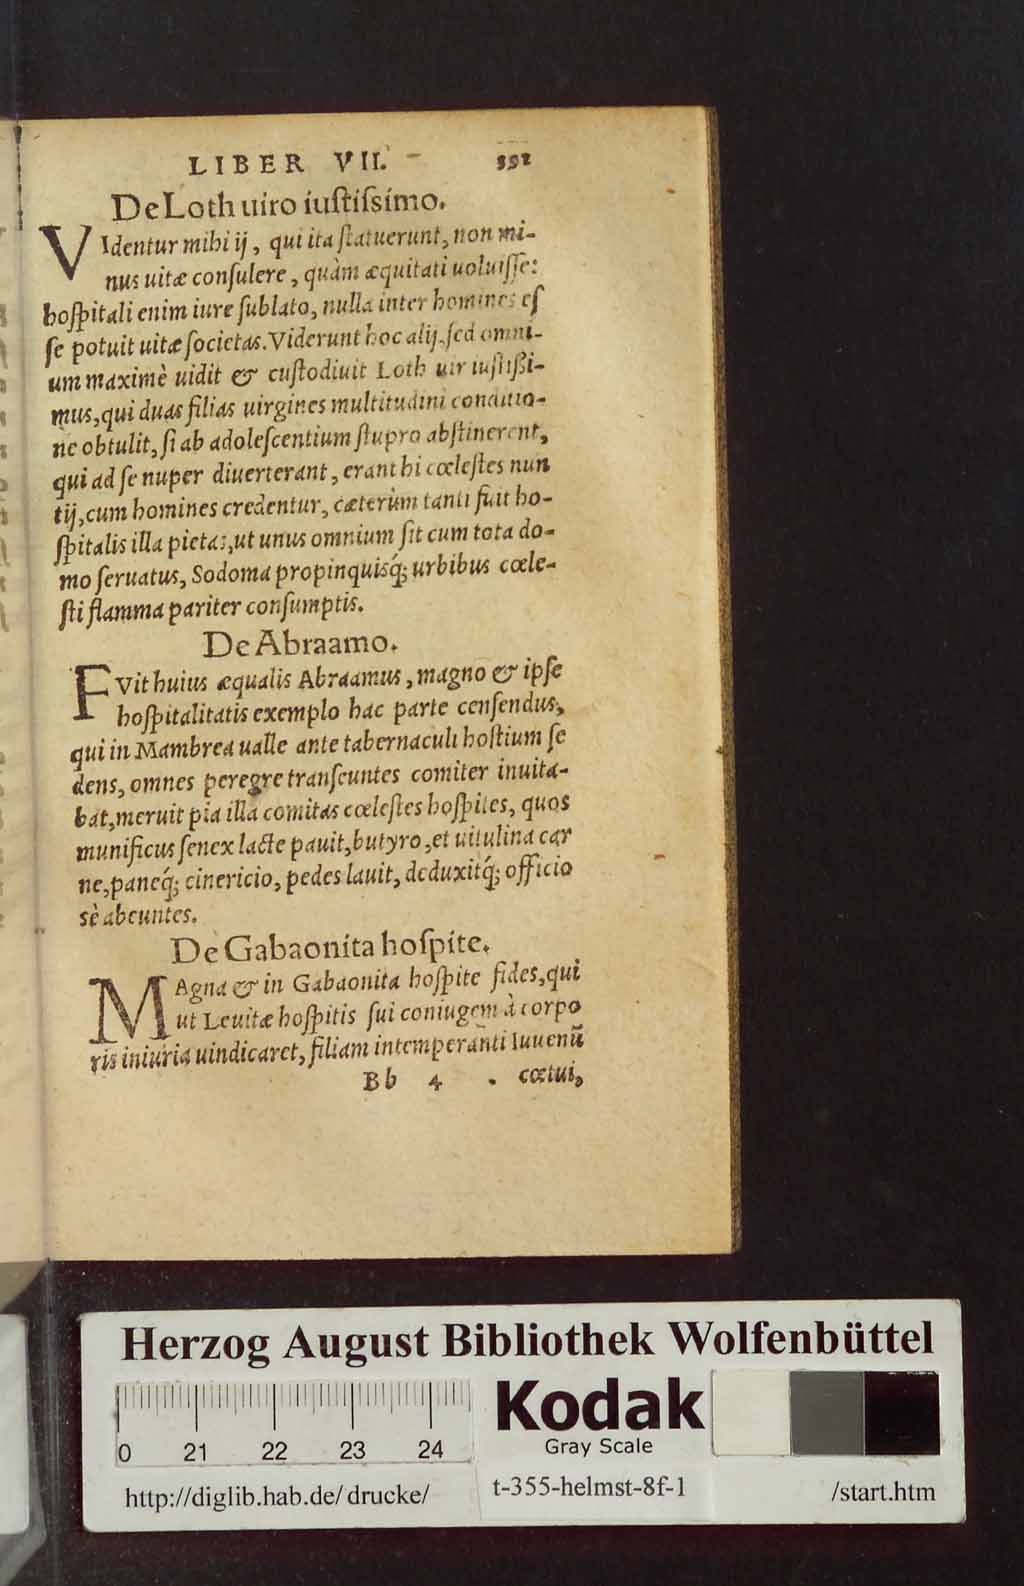 LIBER VII. 391
De Loth uiro iuſtiſsimo.
VIdentur mihi ij, qui ita ſtatuerunt, non mi-
nus uitæ conſulere, quàm æquitati uoluiſſe:
hoſpitali enim iure ſublato, nulla inter homines eſ
ſe potuit uitæ ſocietas. Viderunt hoc alij, ſed omni-
um maximè uidit & cuſtodiuit Loth uir iuſtißi-
mus, qui duas filias uirgines multitudini conditio-
ne obtulit, ſi ab adoleſcentium ſtupro abſtinerent,
qui ad ſe nuper diuerterant, erant hi cœleſtes nun
tij, cum homines credentur, cæterùm tanti fuit ho-
ſpitalis illa pietas, ut unus omnium ſit cum tota do-
mo ſeruatus, Sodoma propinquisq́; urbibus cœle-
ſti flamma pariter conſumptis.
De Abraamo.
FVit huius æqualis Abraamus, magno & ipſe
hoſpitalitatis exemplo hac parte cenſendus,
qui in Mambrea ualle ante tabernaculi hoſtium ſe
dens, omnes peregre tranſeuntes comiter inuita-
bat, meruit pia illa comitas cœleſtes hoſpites, quos
munificus ſenex lacte pauit, butyro, et uitulina car
ne, paneq́; cinericio, pedes lauit, deduxitq́; officio
sè abeuntes.
De Gabaonita hoſpite.
MAgna & in Gabaonita hoſpite fides, qui
ut Leuitæ hoſpitis ſui coniugem à corpo
ris iniuria uindicaret, filiam intemperanti Iuuenũ
Bb 4 cœtui,
Herzog August Bibliothek Wolfenbüttel
0 21 22 23 24
Kodak
Gray Scale
http://diglib.hab.de/drucke/ t-355-helmst-8f-1 /start.htm